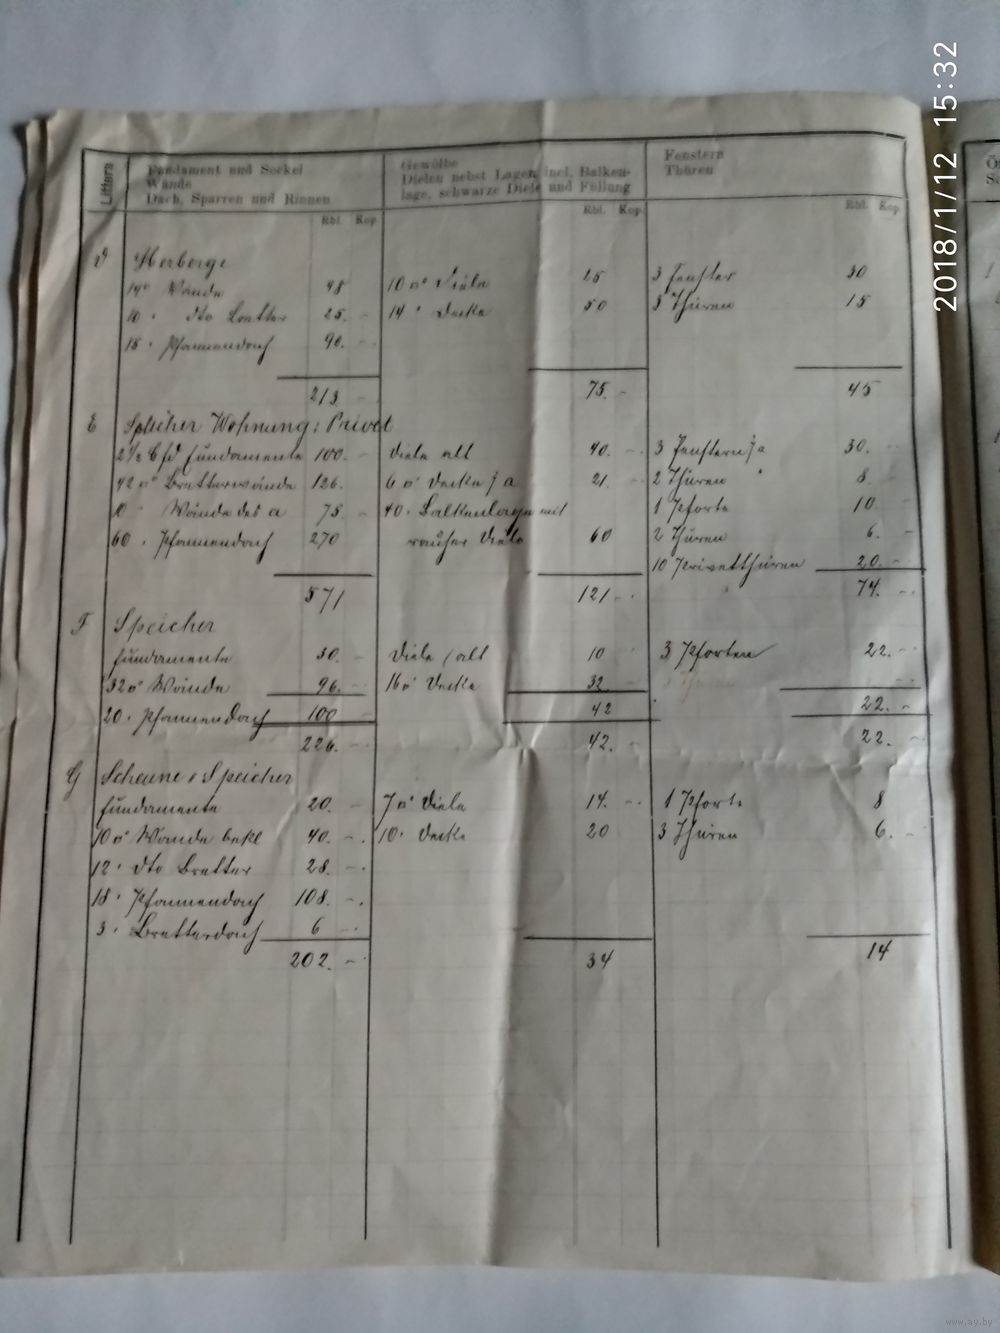 2018/1/12 15:32
Littera
Fundament und Sockel
Wände
Dach, Sparren und Rinnen
Gewölbe
Dielen nebst Lagen incl. Balken-
lage, schwarze Diele und Füllung
Fenstern
Thüren
Rbl. Kop. Rbl. Kop. Rbl. Kop.
D Herberge
14 Wände 98 10 Diele 25 3 Fenster 30
10 dto Bretter 25 14 Decke 50 3 Thüren 15
15 Pfannendach 90
213 75 45
E Speicher Wohnung : Privet
Fundamente 100 Diele alt 40 3 Fenstern 30
42 Bretterwände 126 6 Decke 21 2 Thüren 8
Wände des a 75 40 Balkenlagen mit 1 Pforte 10
60 Pfannendach 270 rauher Diele 60 2 Thüren 6
10 Privetthüren 20
571 121 74
F Speicher
Fundamente 30 Diele alt 10 3 Pforten 22
32 Wände 96 16 Decke 32
20 Pfannendach 100 42 22
226 42 22
G Scheune Speicher
Fundamente 20 7 Diele 14 1 Pforte 8
10 Wände bekl 40 10 Decke 20 3 Thüren 6
12 dto Bretter 28
18 Pfannendach 108
3 Bretterdach 6
202 34 14
www.ay.by